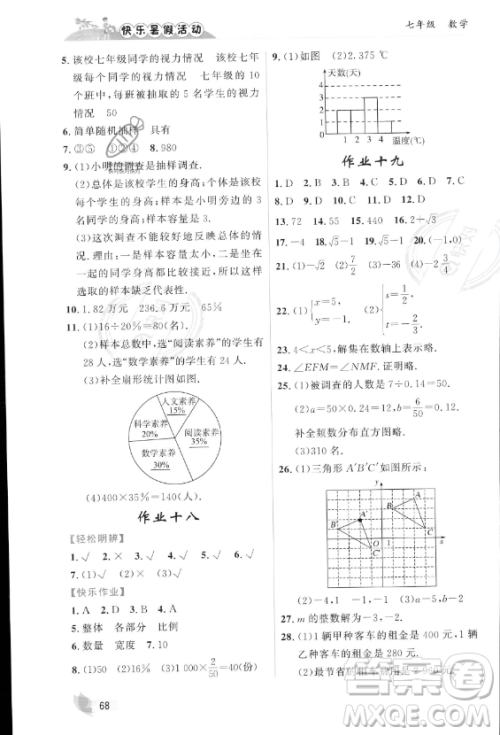 快乐暑假活动
七年级 数学
5. 该校七年级同学的视力情况 该校七年
级每个同学的视力情况 七年级的10
个班中，每班抽取的5名学生的视力
情况 50
6. 简单随机抽样 具有
7. ③⑤ ①②④ 8. 980
9. (1)小明的调查是抽样调查.
(2)总体是该校学生的身高；个体是该
校每个学生的身高；样本是小明旁边的3
名同学的身高；样本容量是3.
(3)这个调查不能较好地反映总体的
情况. 因为样本容量太小，加上坐在
一起的同学身高都比较接近，所以这样
选取的样本缺乏代表性.
10. 1.82万元 236.6万元 63%
11. (1)16÷20%=80(名).
(2)样本总数中，选“阅读素养”的学生有
28人，选“数学素养”的学生有24人.
(3)补全扇形统计图如图.
人文素养
15%
科学素养
20%
阅读素养
35%
数学素养
30%
(4)400×35%=140(人).
作业十八
【轻松明辨】
1. √ 2. × 3. √ 4. √ 5. √ 6. √
7. (1)√ (2)√ (3)√
【快乐作业】
1. A 2. D 3. B 4. D
5. 整体 各部分 比例
6. 数量 宽度 7. 10
8. (1)50 (2)16% (3)1 000×2/50=40(份)
9. (1)如图 (2)2.375 ℃
天数(天)
4
3
2
1
0 1 2 3 4 温度(℃)
作业十九
1. D 2. D 3. B 4. C 5. A 6. D
7. D 8. B 9. C 10. D 11. A 12. D
13. 72 14. 55 15. 440 16. 2+√3
17. -4 18. -1 19. ② 20. ①④
21. (1)-√2 (2)7/2 (3)-36 (4)-2 3/4
22. (1){x=5, y=1. (2){s=1/2, t=-1/2.
23. 4<x<5，解集在数轴上表示略.
24. ∠EFM=∠NMF. 证明略.
25. (1)被调查的人数是7÷0.14=50.
(2)a=50×0.24=12，b=6/50=0.12.
补全频数分布直方图略.
(3)310名.
26. (1)三角形A′B′C′如图所示：
(2)-4，1 -1，-1 (3)a-5，b-2
27. m的整数解为-3，-2.
28. (1)1辆甲种客车的租金是400元，1辆
乙种客车的租金是280元.
68